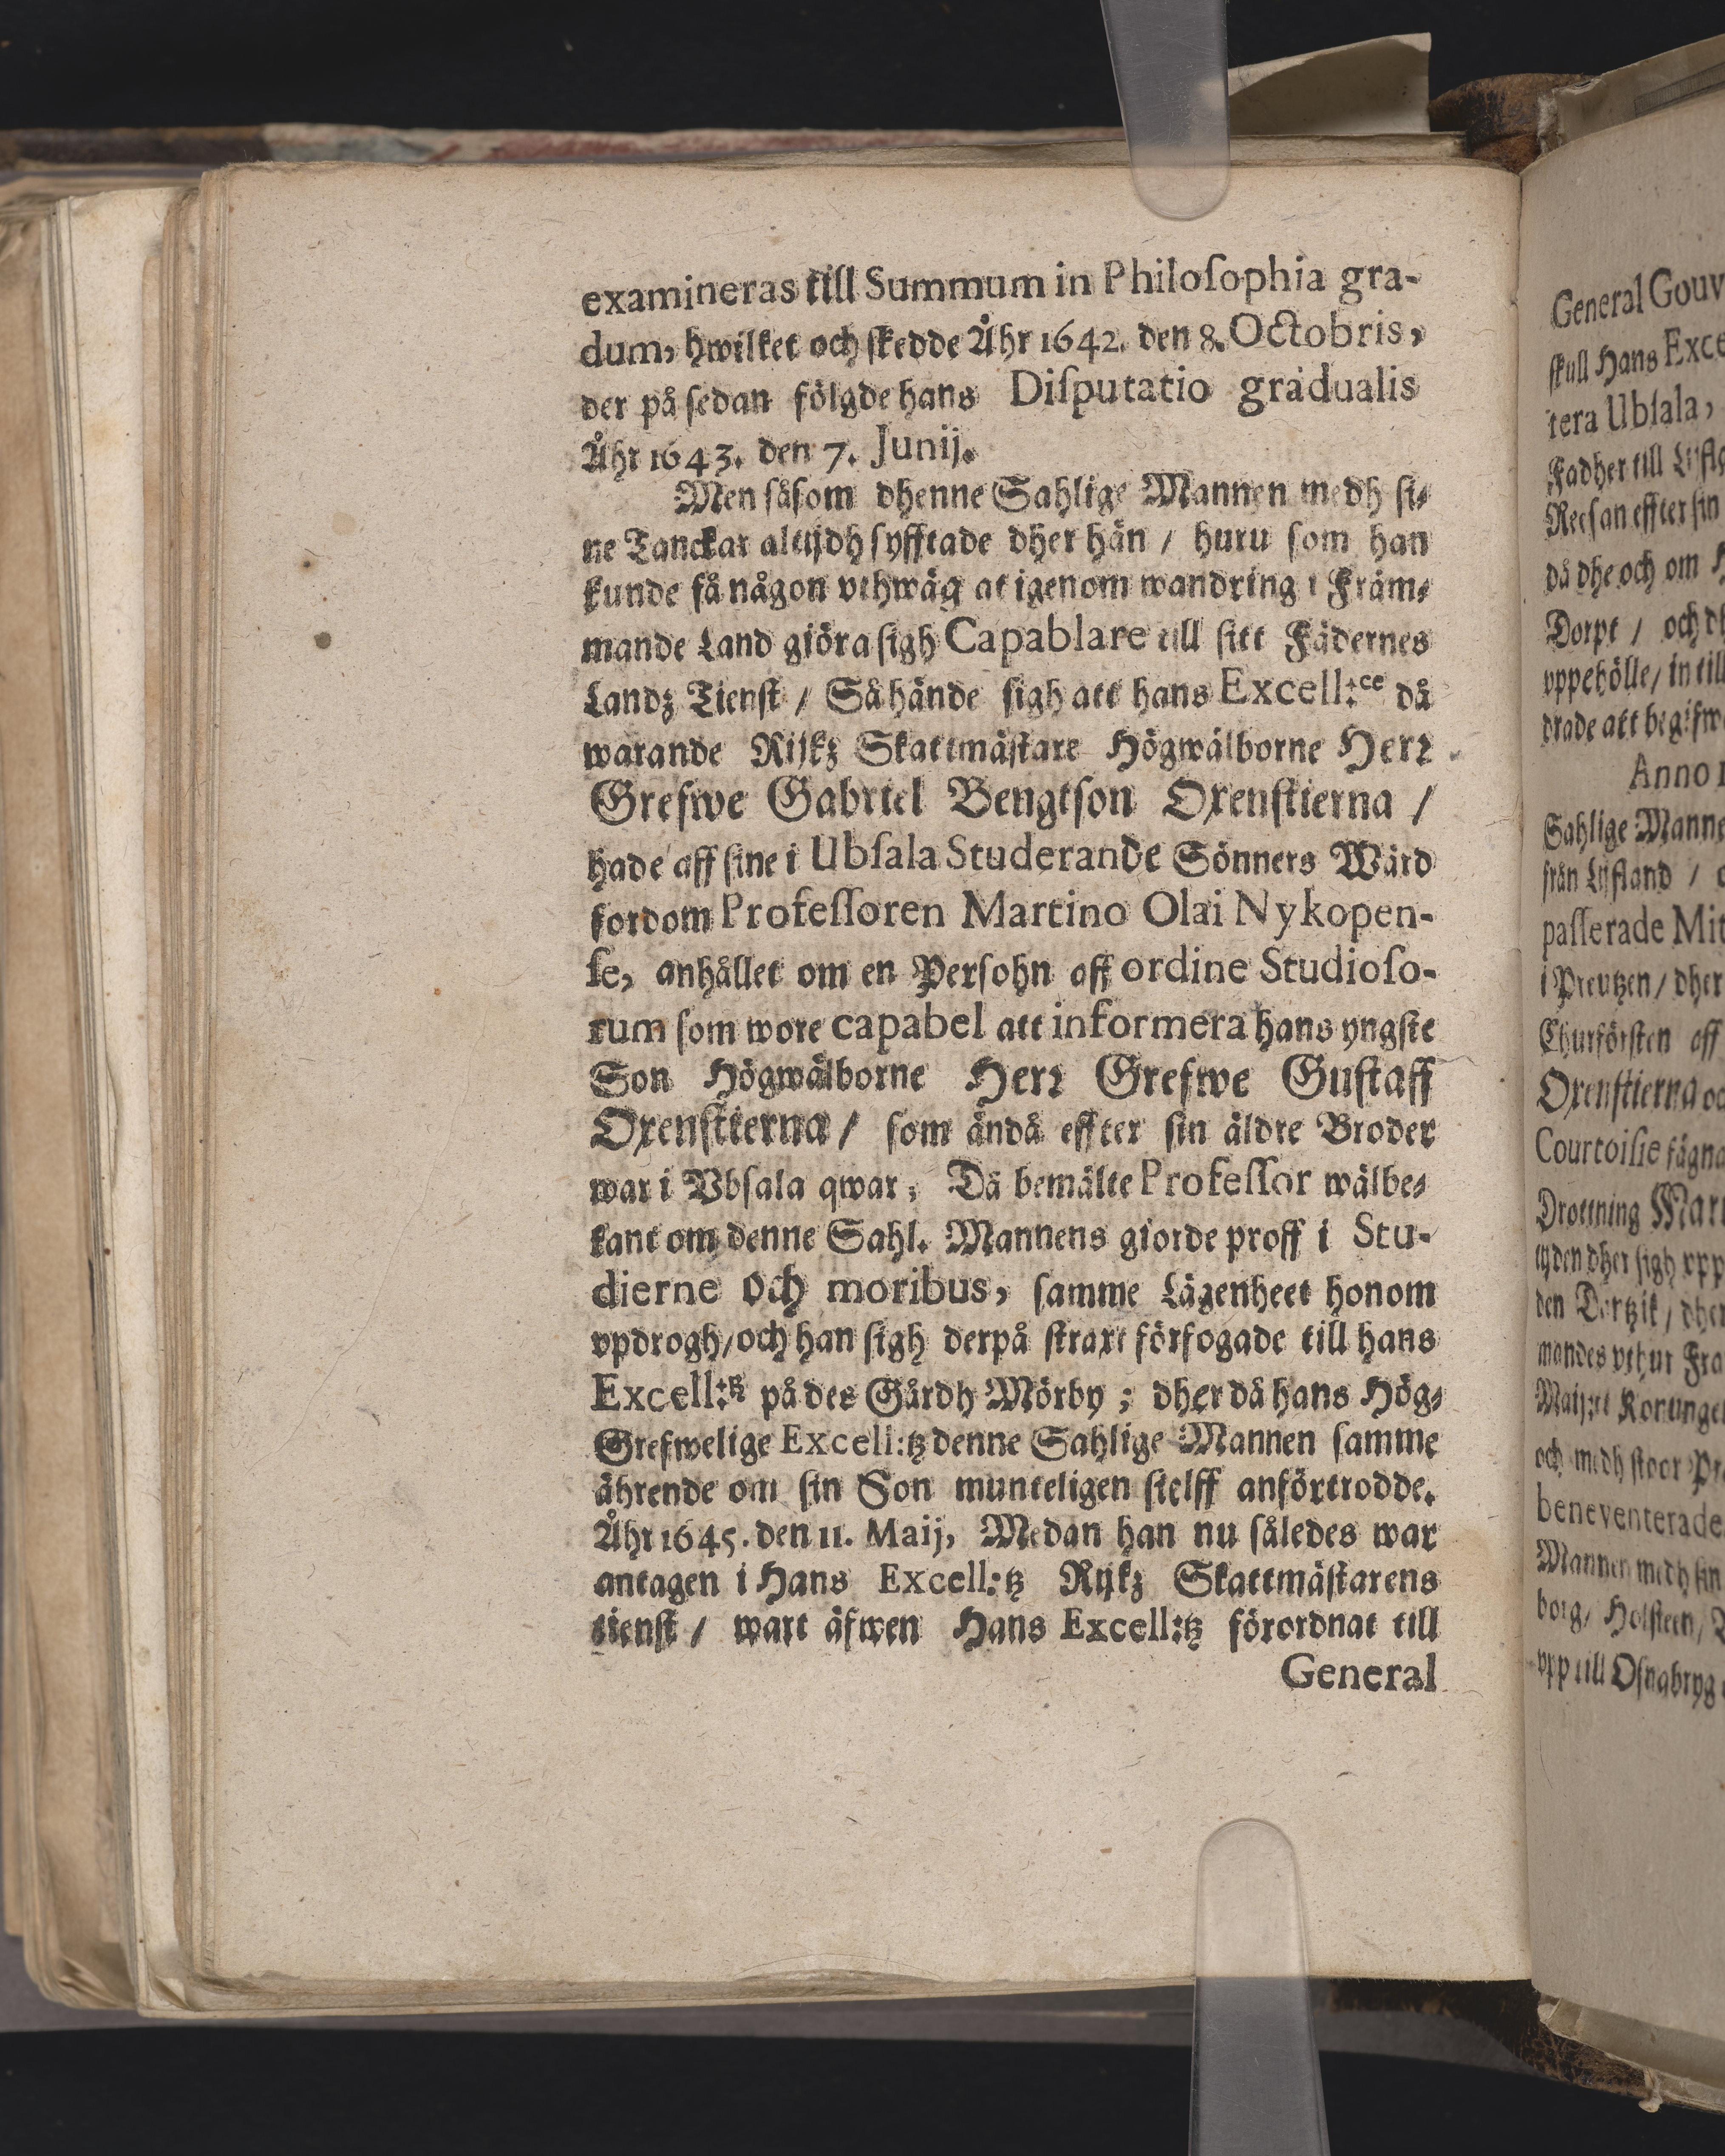 examineras till Summum in Philoſophia gra-
dum, hwilket och ſkedde Åhr 1642. den 8. Octobris,
der på ſedan fölgde hans Diſputatio gradualis
Åhr 1643. den 7. Junij.
Men såſom dhenne Sahlige Mannen medh ſi-
ne Tanckar altijdh ſyfftade dher hän / huru ſom han
kunde få någon vthwäg at igenom wandring i Främ-
mande Land giöra ſigh Capablare till ſitt Fädernes
Landz Tienſt / Så hände ſigh att hans Excell:ce då
warande Rijkz Skattmäſtare Högwälborne Herr
Grefwe Gabriel Bengtſon Oxenſtierna /
hade aff ſine i Ubſala Studerande Sönners Wärd
fordom Profeſſoren Martino Olai Nykopen-
ſe, anhållet om en Perſohn aff ordine Studioſo-
rum ſom wore capabel att informera hans yngſte
Son Högwälborne Herr Grefwe Guſtaff
Oxenſtierna / ſom ändå effter ſin äldre Broder
war i Vbſala qwar, Då bemälte Profeſſor wälbe-
kant om denne Sahl. Mannens giorde proff i Stu-
dierne och moribus, ſamme Lägenheet honom
vpdrogh / och han ſigh derpå ſtraxt förfogade till hans
Excell:tz på des Gårdh Mörby ; dher då hans Hög-
Grefwelige Excell:tz denne Sahlige Mannen ſamme
ährende om ſin Son munteligen ſielff anförtrodde.
Åhr 1645. den 11. Maij, Medan han nu således war
antagen i Hans Excell:tz Rijkz Skattmäſtarens
tienſt / wart äfwen Hans Excell:tz förordnat till
General
General Gouv
ſkull Hans Exce
tera Ubſala,
Fadher till Lijfl
Reeſan effter ſin
då dhe och om
Dorpt / och
vppehölle / in till
drade att begifw
Anno
Sahlige Manne
från Lijfland /
paſſerade Mit
i Preutzen / dher
Churförſten aff
Oxenſtierna oc
Courtoiſie fägna
Drottning Mari
tijden dher ſigh vpp
den Dantzik / dher
mandes vthur Fra
Maij:tt Konunge
och medh ſtoor Pr
beneventerade
Mannen medh ſin
borg, Holſteen /
vpp till Oſnabryg